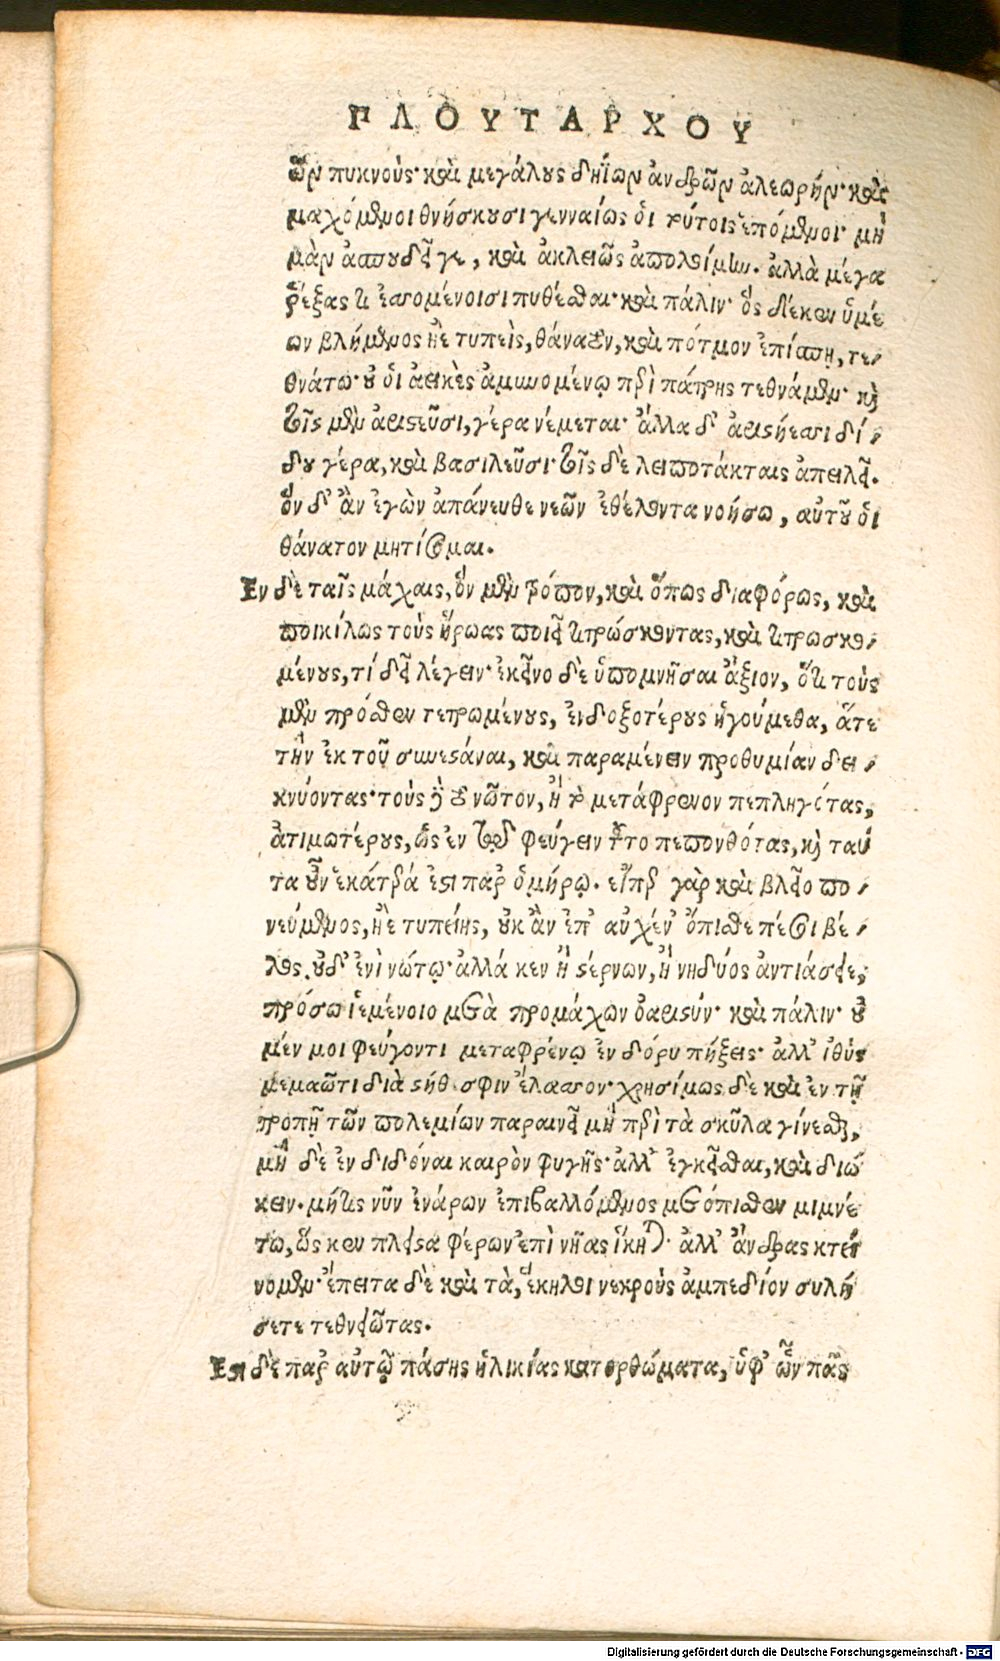 ΠΛΟΥΤΑΡΧΟΥ
ὧν πυκνούς· καὶ μεγάλους δηΐων ἀνδρῶν ἀλεωρήν· καὶ
μαχόμενοι θνήσκουσι γενναίως οἱ τούτοις ἑπόμενοι· μὴ
μὰν ἀσπουδεί γε, καὶ ἀκλειῶς ἀπολοίμην. ἀλλὰ μέγα
ῥέξας τι ἐσσομένοισι πυθέσθαι· καὶ πάλιν· ὃς δέ κεν ὑμέ
ων βλήμενος ἠὲ τυπεὶς, θάνατον, καὶ πότμον ἐπίσπῃ, τε-
θνάτω· οὔ οἱ ἀεικὲς ἀμυνομένῳ περὶ πάτρης τεθνάμεν· καὶ
τοῖς μὲν ἀριστεῦσι, γέρα νέμεται· ἄλλα δ' ἀριστήεσσι δί-
δου γέρα, καὶ βασιλεῦσι· τοῖς δὲ λειποτάκταις ἀπειλεῖ.
ὃν δ' ἂν ἐγὼν ἀπάνευθε νεῶν ἐθέλοντα νοήσω, αὐτοῦ οἱ
θάνατον μητίσομαι.
Ἐν δὲ ταῖς μάχαις, ὃν μὲν τρόπον, καὶ ὅπως διαφόρως, καὶ
ποικίλως τοὺς ἥρωας ποιεῖ τιτρώσκοντας, καὶ τιτρωσκο-
μένους, τί δεῖ λέγειν· ἐκεῖνο δὲ ὑπομνῆσαι ἄξιον, ὅτι τοὺς
μὲν πρόσθεν τετρωμένους, ἐνδοξοτέρους ἡγούμεθα, ἅτε
τὴν ἐκ τοῦ συνεστάναι, καὶ παραμένειν προθυμίαν δει-
κνύοντας· τοὺς δὲ τὸν νῶτον, ἢ τὸ μετάφρενον πεπληγότας,
ἀτιμωτέρους, ὡς ἐν τῷ φεύγειν τοῦτο πεπονθότας, καὶ ταῦ
τα οὖν ἑκάτερά ἐστι παρ' ὁμήρῳ. εἴπερ γὰρ καὶ βλεῖο πο-
νεύμενος, ἠὲ τυπείης, οὐκ ἂν ἐπ' αὐχέν' ὄπισθε πέσοι βέ-
λος, οὐδ' ἐνὶ νώτῳ· ἀλλά κεν ἢ στέρνων, ἢ νηδύος ἀντιάσειε,
πρόσω ἱεμένοιο μετὰ προμάχων ὀαριστύν· καὶ πάλιν· οὐ
μέν μοι φεύγοντι μεταφρένῳ ἐν δόρυ πήξεις· ἀλλ' ἰθὺς
μεμαῶτι διὰ στήθεσφιν ἔλασσον· χρησίμως δὲ καὶ ἐν τῇ
τροπῇ τῶν πολεμίων παραινεῖ μὴ περὶ τὰ σκῦλα γίνεσθαι,
μὴ δὲ ἐνδιδόναι καιρὸν φυγῆς· ἀλλ' ἐγκεῖσθαι, καὶ διώ
κειν. μήτις νῦν ἐνάρων ἐπιβαλλόμενος μετόπισθεν μιμνέ
τω, ὥς κεν πλεῖστα φέρων ἐπὶ νῆας ἵκηται· ἀλλ' ἄνδρας κτεί
νομεν· ἔπειτα δὲ καὶ τὰ, ἕκηλοι νεκροὺς ἀμπεδίον συλή
σετε τεθνειῶτας.
Ἔστι δὲ παρ' αὐτῷ πάσης ἡλικίας κατορθώματα, ὑφ' ὧν πᾶς
Digitalisierung gefördert durch die Deutsche Forschungsgemeinschaft - DFG